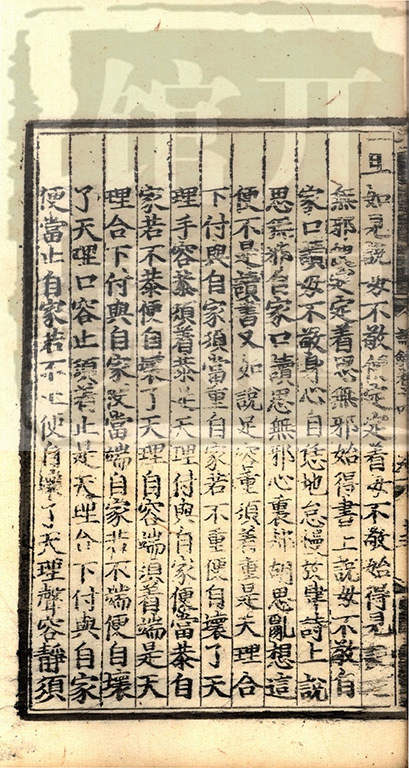 且如孔說毋不敬便定定着毋不敬始得見
無邪便定定着思無邪始得書上說毋不敬自
家口讀毋不敬身心自恁地怠慢放肆詩上說
思無邪自家口讀思無邪心裏却胡思亂想這
便不是讀書又如說足容重須着重是天理合
下付與自家須當重自家若不重便自壞了天
理手容恭須着恭是天理付與自家便當恭自
家若不恭便自壞了天理目容端須着端是天
理合下付與自家便當端自家若不端便自壞
了天理口容止須着止是天理合下付與自家
便當止自家若不止便自壞了天理聲容靜須